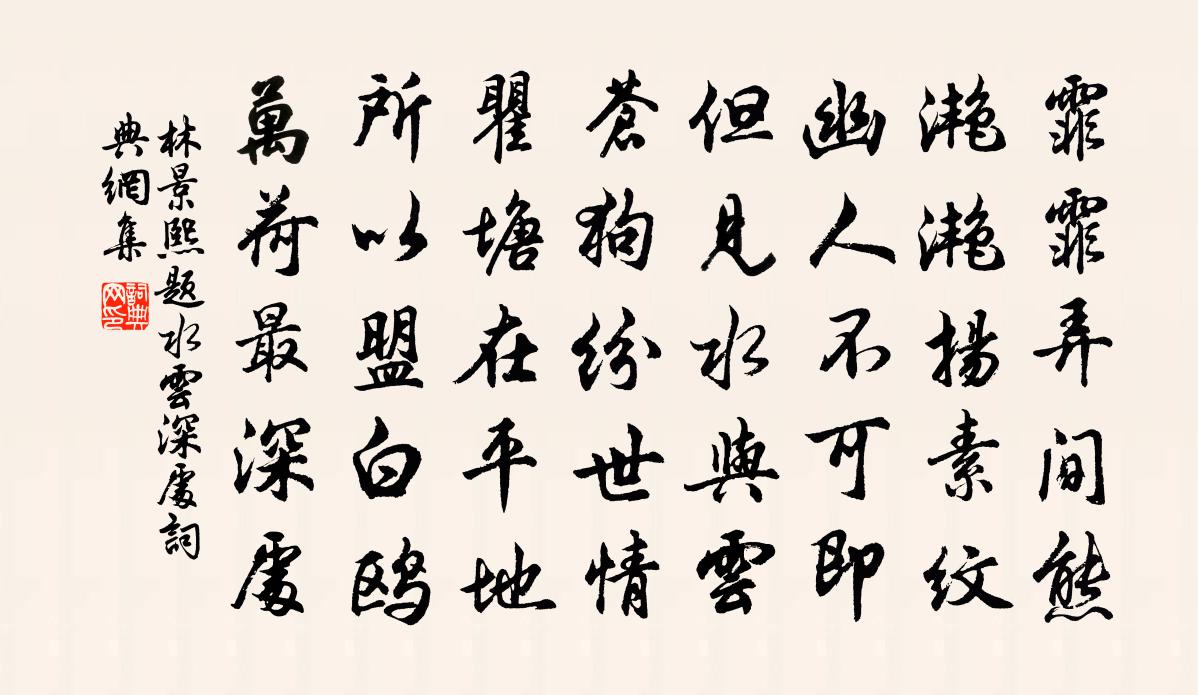 霏霏弄閒態
灔灔揚素紋
幽人不可即
但見水與雲
蒼狗紛世情
瞿塘在平地
所以盟白鷗
萬荷最深處
林景熙題水雲深處詞
典網集
詞典
网印